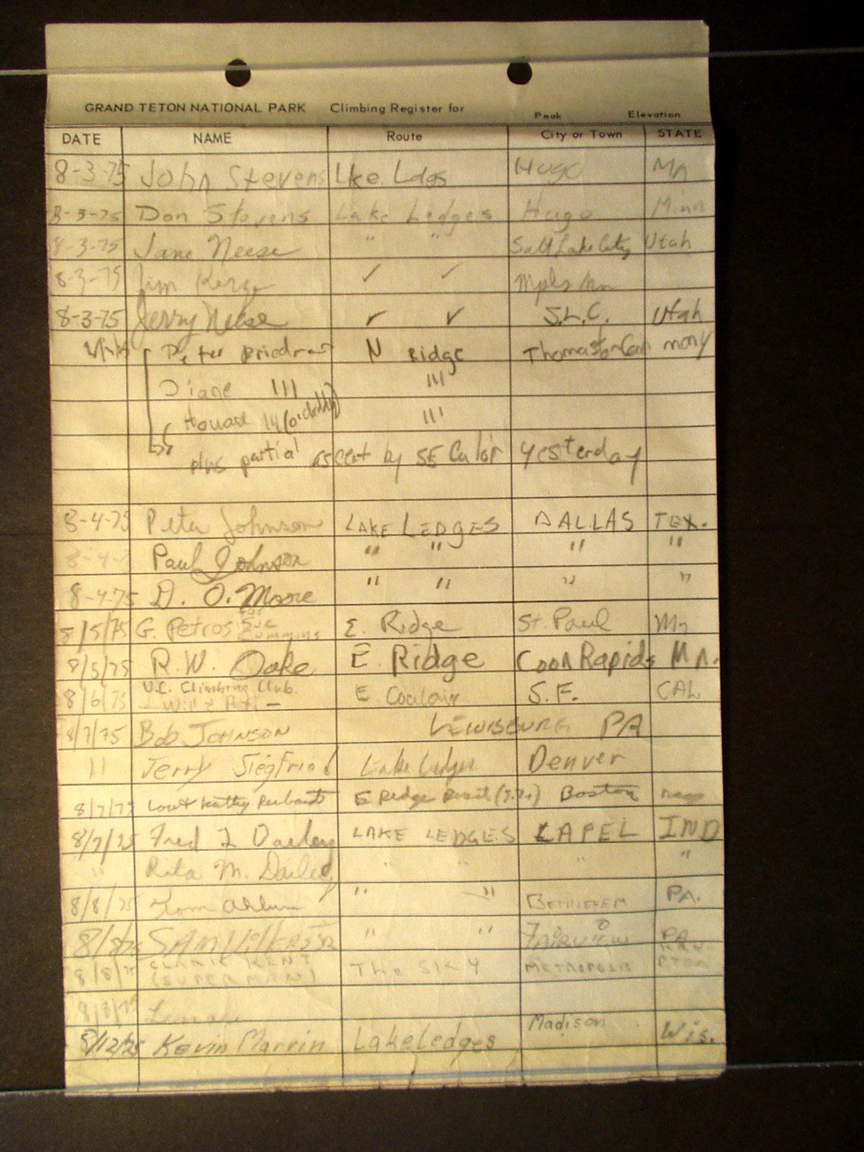 GRAND TETON NATIONAL PARK Climbing Register for Peak Elevation
DATE NAME Route City or Town STATE
8-3-75 John Stevens Lke. Ldgs Hugo Mn
8-3-75 Don Stevens Lake Ledges Hugo Minn
8-3-75 Jane Neese " " Salt Lake City Utah
8-3-75 Jim ✓ ✓ Mpls Mn
8-3-75 Jerry Neese ✓ ✓ S.L.C. Utah
Peter N ridge
Diane III III
III
plus partial ascent by SE yesterday
8-4-75 Peter Johnson LAKE LEDGES DALLAS TEX.
8-4- Paul Johnson " " " "
8-4-75 D. O. Moore " " " "
8/5/75 G. Petros for Sue Cummins E. Ridge St. Paul Mn
8/5/75 R.W. Oake E. Ridge Coon Rapids Mn.
8/6/75 U.C. Climbing Club. E. S.F. CAL
8/7/75 Bob JOHNSON LEWISBURG PA
" Jerry Siegfried Lake Ledges Denver
8/7/75 Kathy E Ridge Boston
8/7/75 Fred LAKE LEDGES LAPEL IND
" Rita M. " " " "
8/8/75 Tom " " BETHLEHEM PA.
8/8/75 SAM " " FAIRVIEW PA
8/8/75 CLARK KENT (SUPERMAN) THE SKY METROPOLIS KRYPTON
8/8/75
8/12/75 Kevin Lake Ledges Madison Wis.